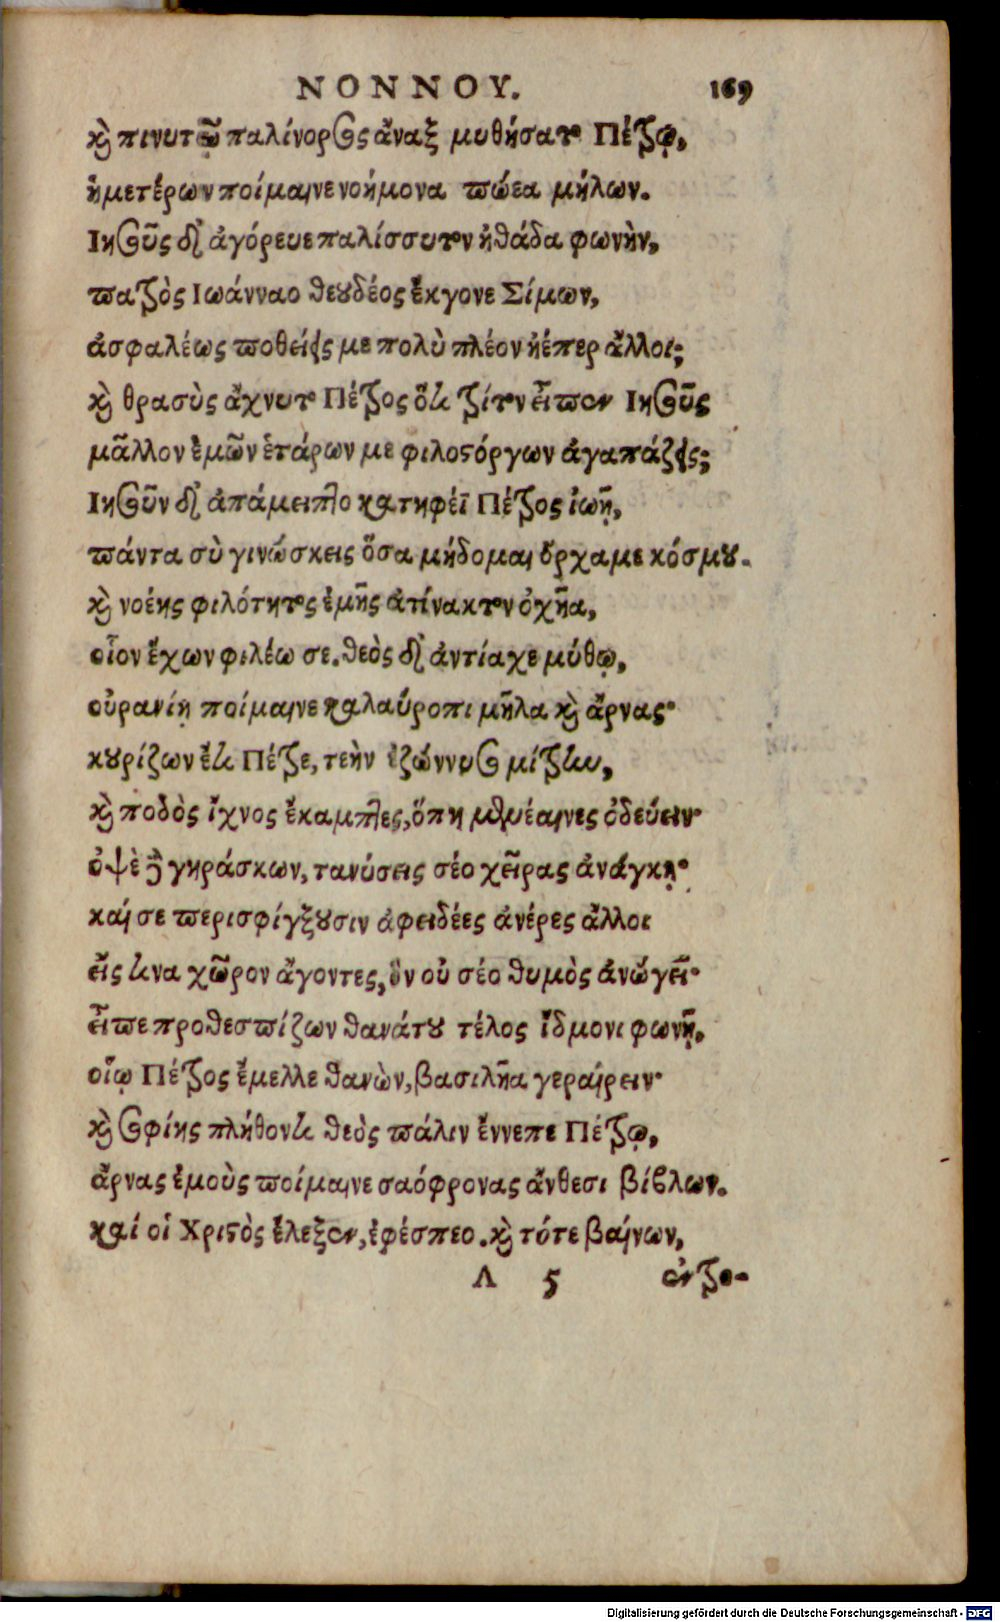 ΝΟΝΝΟΥ. 169
καὶ πινυτῷ παλίνορσος ἄναξ μυθήσατο Πέτρῳ,
ἡμετέρων ποίμαινε νοήμονα πώεα μήλων.
Ιησοῦς δ' ἀγόρευε παλίσσυτον ἠθάδα φωνὴν,
πατρὸς Ιωάνναο θεουδέος ἔκγονε Σίμων,
ἀσφαλέως ποθέεις με πολὺ πλέον ἠέπερ ἄλλοι;
καὶ θρασὺς ἄχνυτο Πέτρος ὅτι τρίτον εἶπεν Ιησοῦς
μᾶλλον ἐμῶν ἑτάρων με φιλοστόργων ἀγαπάζεις;
Ιησοῦν δ' ἀπάμειπτο κατηφέϊ Πέτρος ἰωῇ,
πάντα σὺ γινώσκεις ὅσα μήδομαι ὄρχαμε κόσμου.
καὶ νοέης φιλότητος ἐμῆς ἀτίνακτον ὀχῆα,
οἷον ἔχων φιλέω σε. θεὸς δ' ἀντίαχε μύθῳ,
οὐρανίῃ ποίμαινε καλαύροπι μῆλα καὶ ἄρνας·
κουρίζων ἔτι Πέτρε, τεὴν ἐζώννυσο μίτρην,
καὶ ποδὸς ἴχνος ἔκαμπτες, ὅπη μενέαινες ὁδεύειν·
ὀψὲ δὲ γηράσκων, τανύσεις σέο χεῖρας ἀνάγκῃ·
καί σε περισφίγξουσιν ἀφειδέες ἀνέρες ἄλλοι
εἴς τινα χῶρον ἄγοντες, ὃν οὐ σέο θυμὸς ἀνώγει·
εἶπε προθεσπίζων θανάτου τέλος ἴδμονι φωνῇ.
οἵῳ Πέτρος ἔμελλε θανὼν, βασιλῆα γεραίρειν·
καὶ σοφίης πλήθοντι θεὸς πάλιν ἔννεπε Πέτρῳ,
ἄρνας ἐμοὺς ποίμαινε σαόφρονας ἄνθεσι βίβλων.
καί οἱ Χριστὸς ἔλεξεν, ἐφέσπεο. καὶ τότε βαίνων,
Λ 5 ἐντρο-
Digitalisierung gefördert durch die Deutsche Forschungsgemeinschaft - DFG